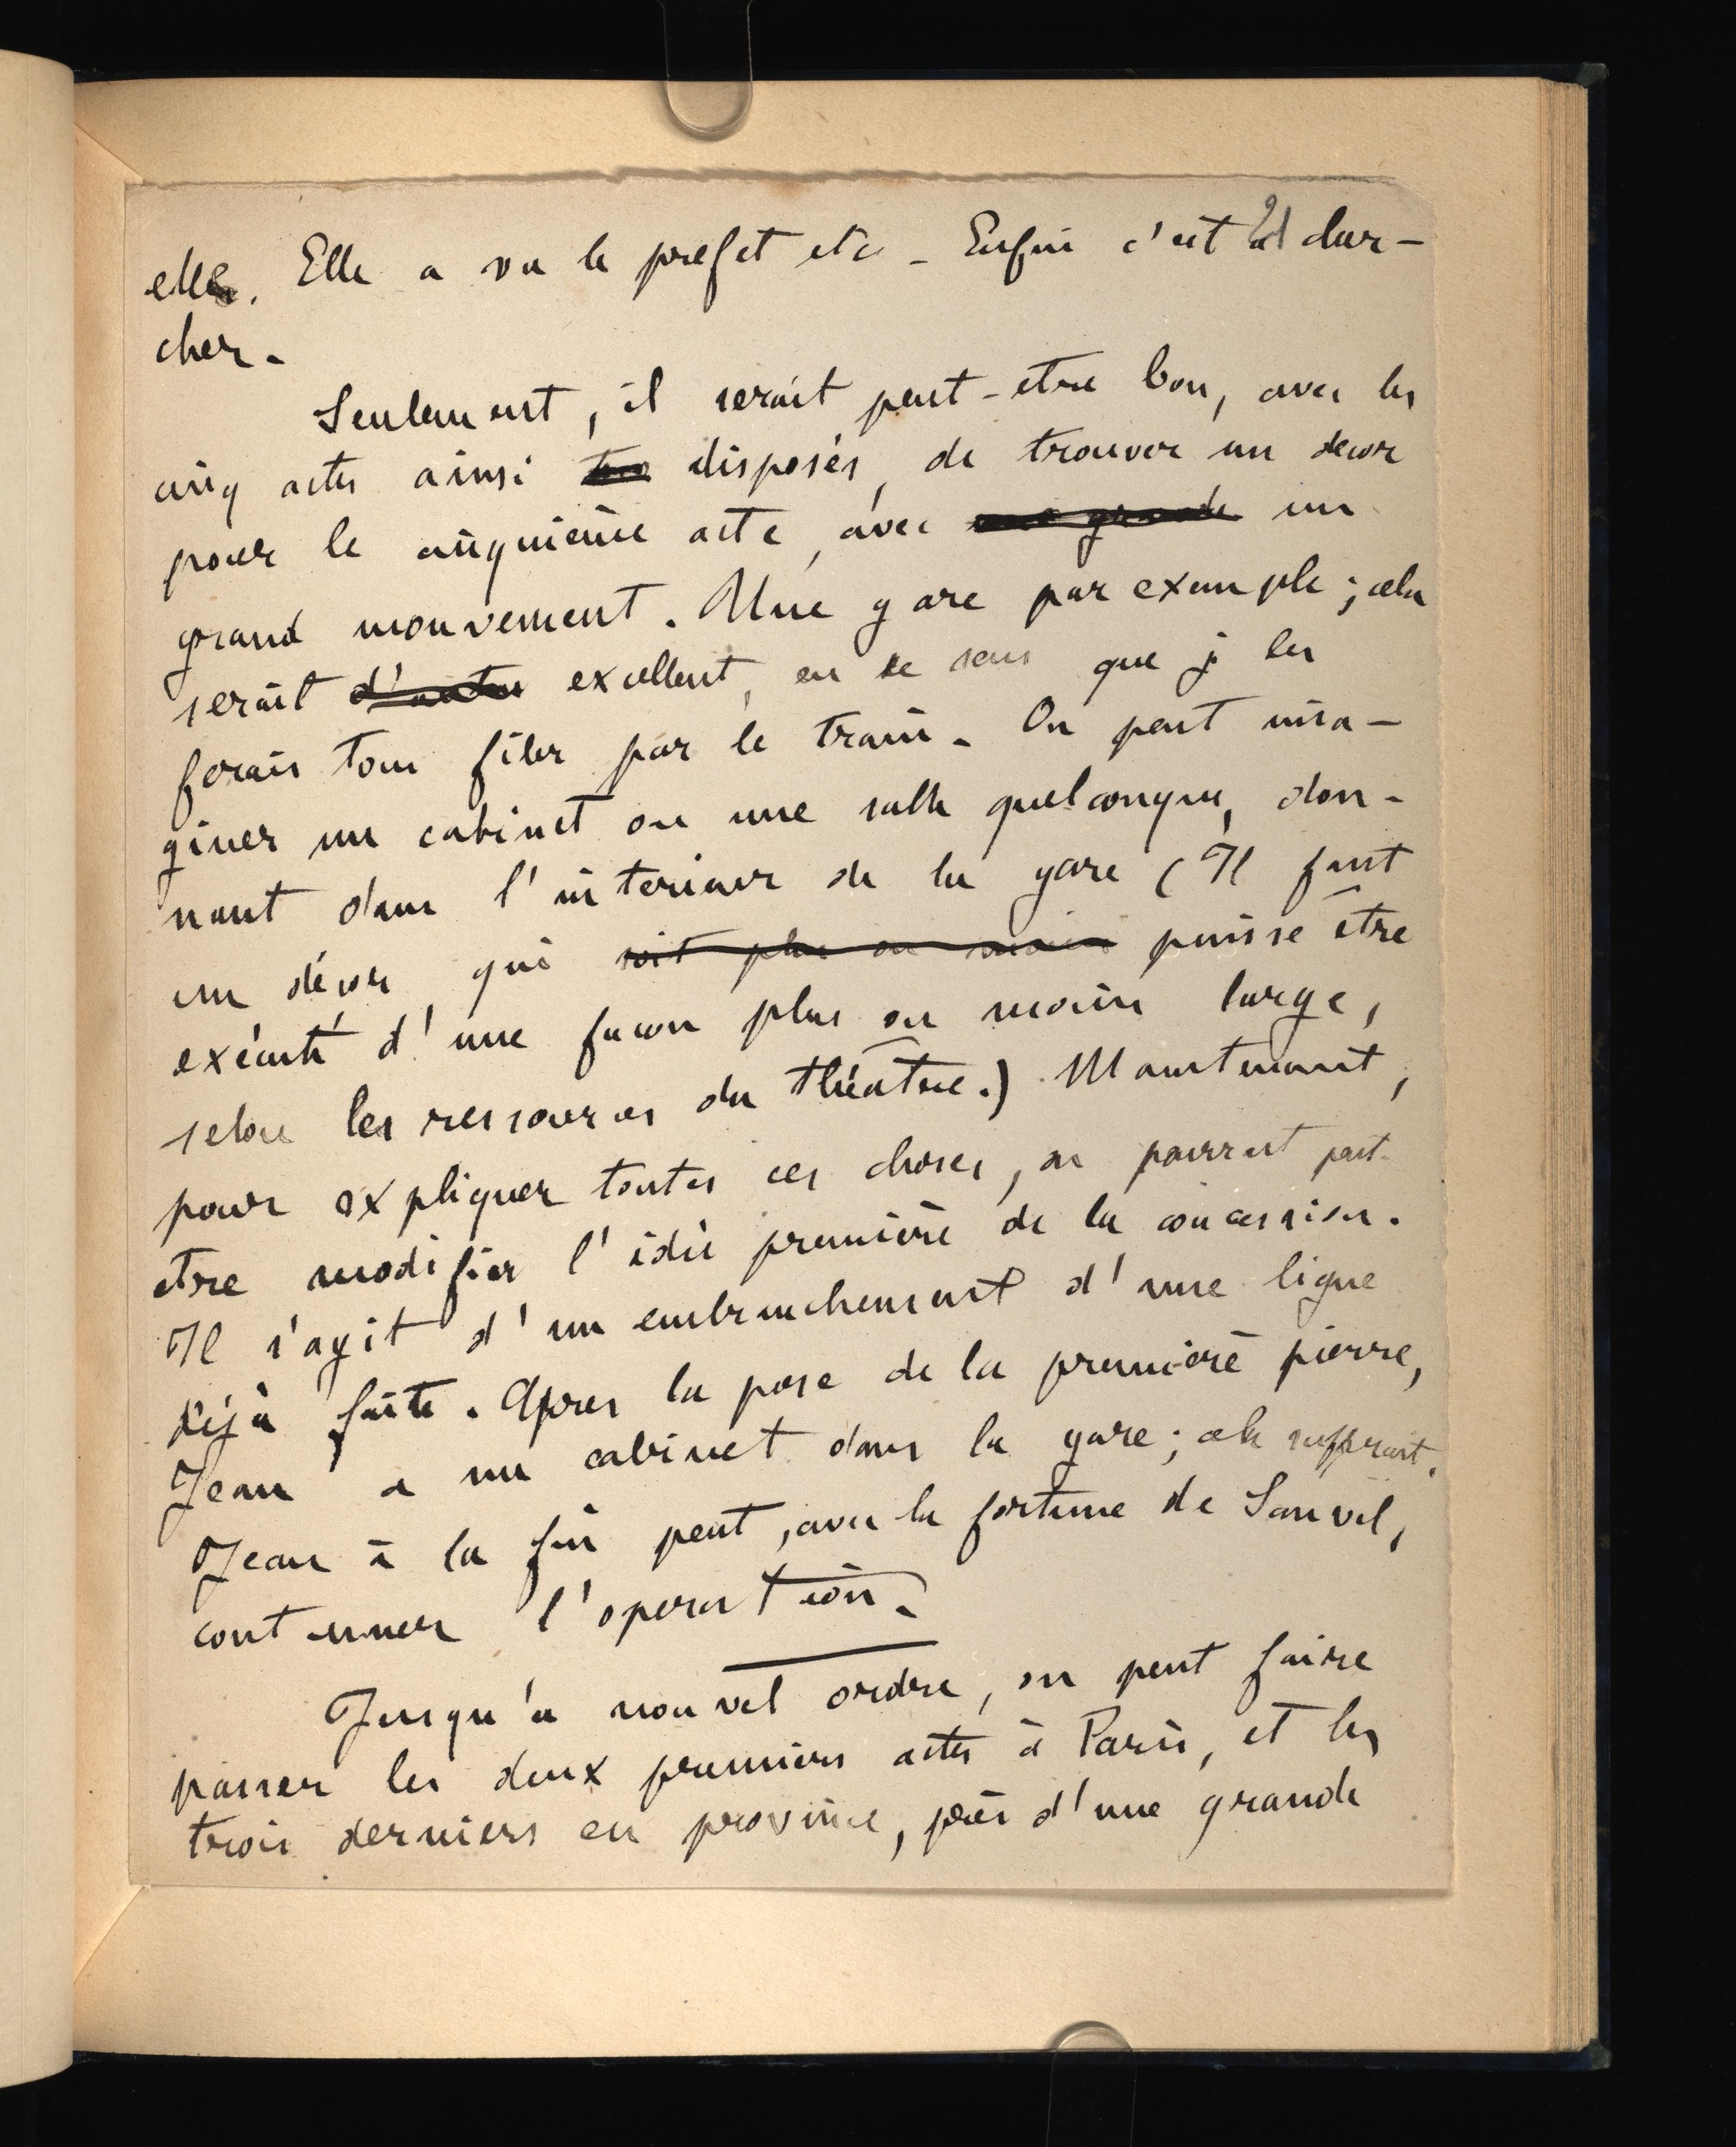 elle. Elle a vu le prefet etc - Enfin c'est à cher-
cher.
Seulement, il serait peut-etre bon, avec les
cinq actes ainsi disposés, de trouver un decor
pour le cinquième acte, avec une grande un
grand mouvement. Une gare par exemple ; cela
serait d'autres excellent, en ce sens que je les
ferais tous filer par le train. On peut ima-
giner un cabinet ou une salle quelconque, don-
nant dans l'interieur de la gare (Il faut
un décor, qui soit plus ou moins puisse être
exécuté d'une facon plus ou moins large,
selon les ressources du théâtre.) Maintenant,
pour expliquer toutes ces choses, on pourrait peut-
etre modifier l'idée première de la concession.
Il s'agit d'un embranchement d'une ligne
déjà faite. Apres la pose de la première pierre,
Jean a un cabinet dans la gare ; cela suffirait.
Jean à la fin peut, avec la fortune de Sauvel,
continuer l'operation.
Jusqu'a nouvel ordre, on peut faire
passer les deux premiers actes à Paris, et les
trois derniers en province, près d'une grande